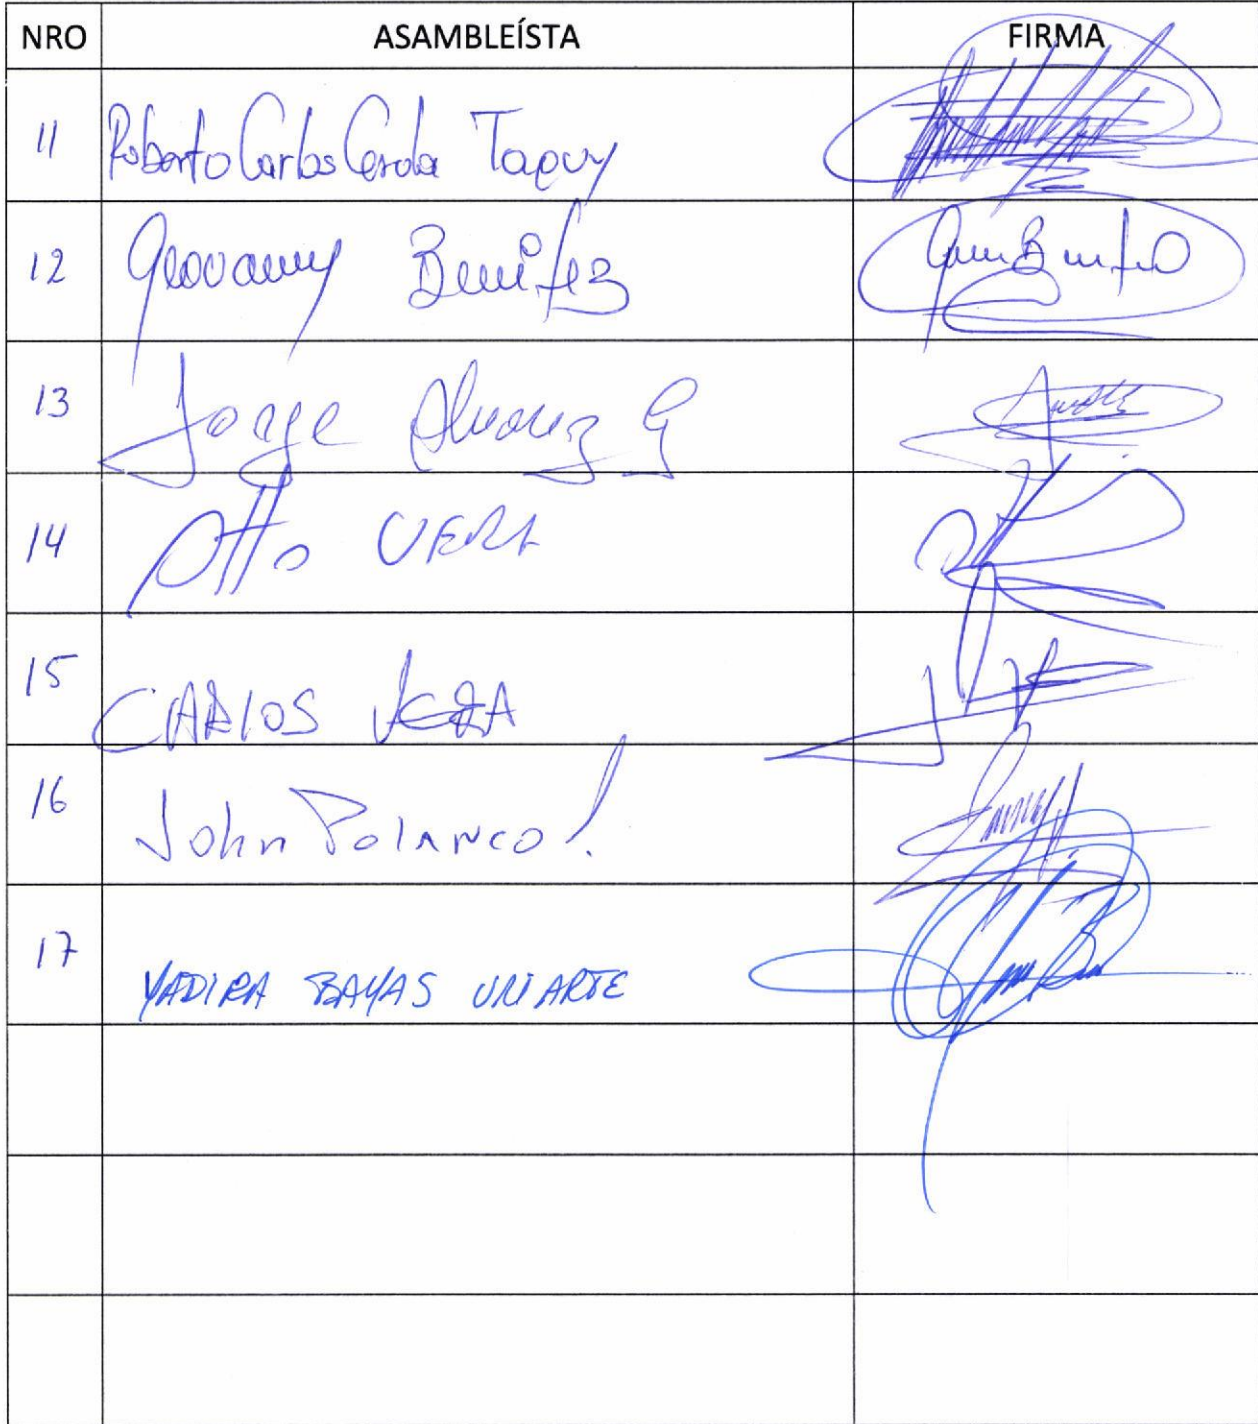 NRO ASAMBLEÍSTA FIRMA
11 Roberto Carlos Cerda Tapuy
12 Geovanny Benítez
13 Jorge Alvarez G
14 Otto VERA
15 CARLOS VERA
16 John Polanco!
17 YADIRA BAYAS URIARTE